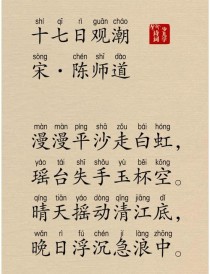 shí qī rì guān cháo
十七日观潮
sòng chén shī dào
宋·陈师道
màn màn píng shā zǒu bái hóng
漫漫平沙走白虹，
yáo tái shī shǒu yù bēi kōng
瑶台失手玉杯空。
qíng tiān yáo dòng qīng jiāng dǐ
晴天摇动清江底，
wǎn rì fú chén jí làng zhōng
晚日浮沉急浪中。